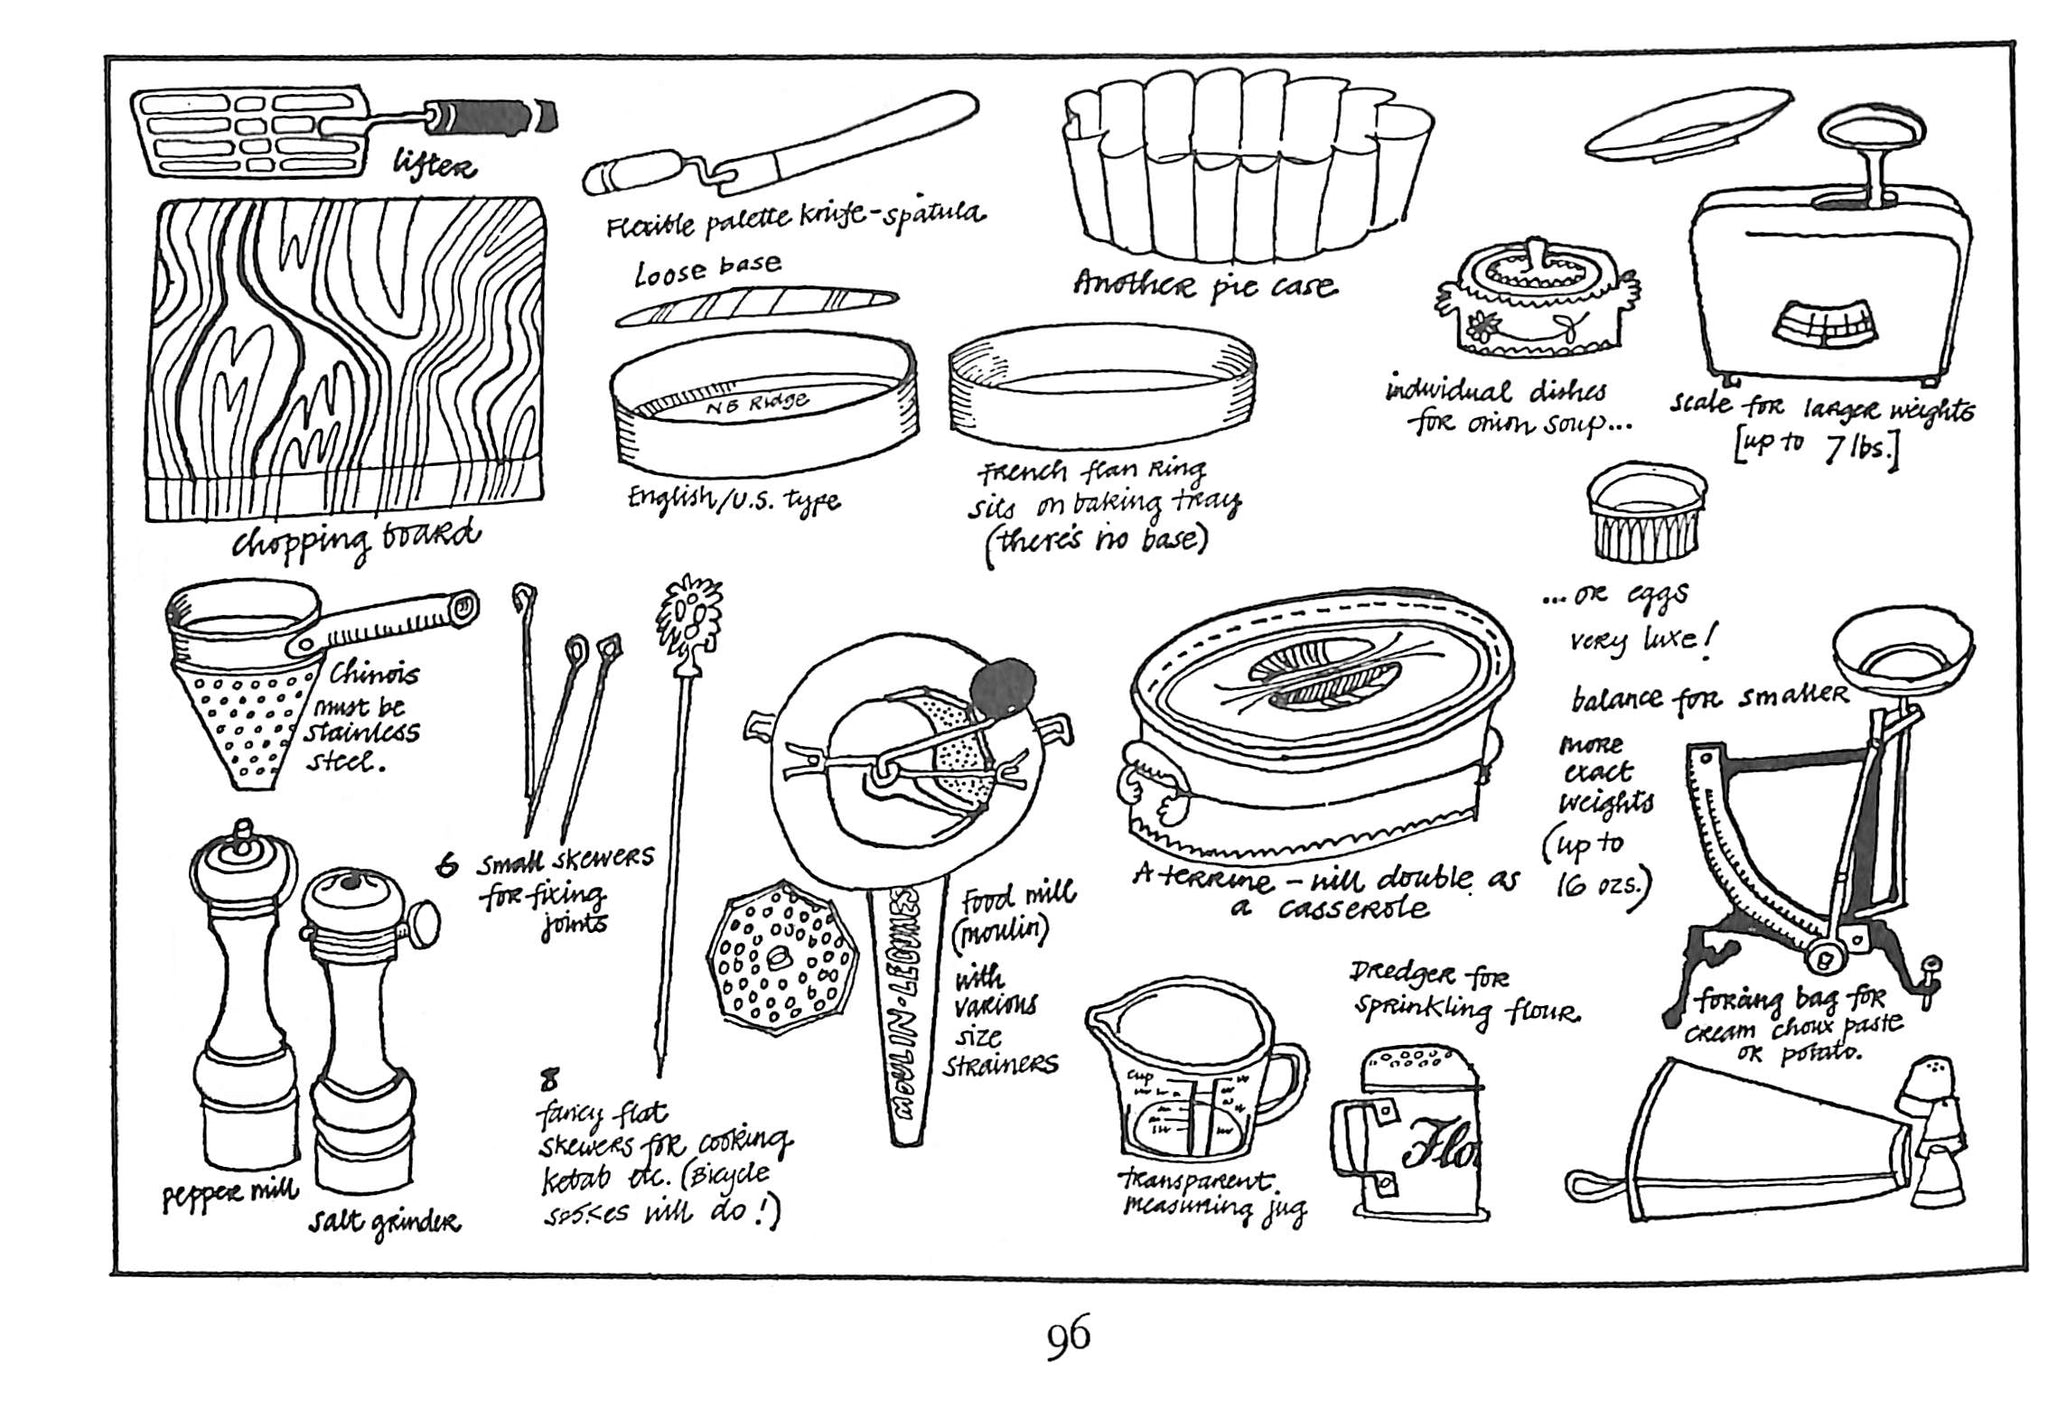 lifter
Flexible palette knife-spatula
Another pie case
Loose base
NB Ridge
individual dishes
for onion soup...
scale for larger weights
[up to 7 lbs.]
chopping board
English/U.S. type
French flan ring
sits on baking tray
(there's no base)
...or eggs
very luxe!
Chinois
must be
stainless
steel.
balance for smaller
more
exact
weights
(up to
16 ozs.)
6 small skewers
for fixing
joints
Food mill
(moulin)
with
various
size
strainers
MOULIN·LEGUMES
A terrine - will double as
a casserole
Dredger for
sprinkling flour.
forcing bag for
cream choux paste
or potato.
pepper mill
salt grinder
8
fancy flat
skewers for cooking
kebab etc. (Bicycle
spokes will do!)
cup
transparent
measuring jug
Flo
96